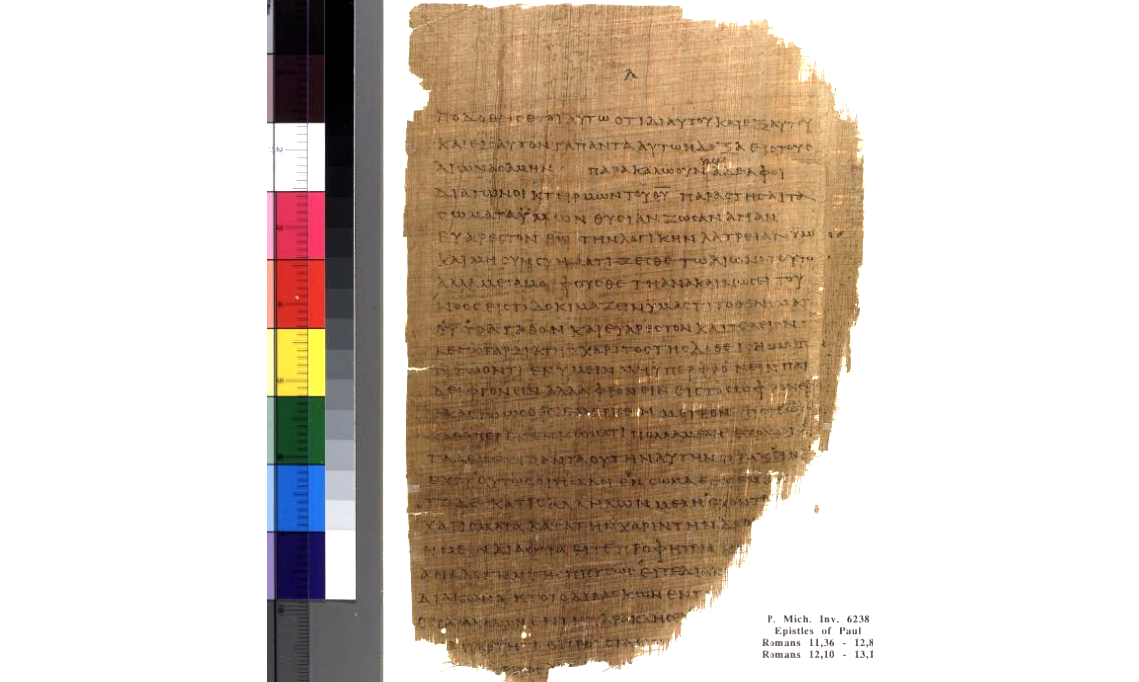 λ
ποδοθησεται αυτω οτι δι αυτου και εξ αυτου
και εις αυτον τα παντα αυτω η δοξα εις τους
αιωνας αμην παρακαλω ουν υμας αδελφοι
δια των οικτειρμων του θυ παραστησαι τα
σωματα υμων θυσιαν ζωσαν αγιαν
ευαρεστον θω την λογικην λατρειαν υμω
και μη συνσχηματιζεσθε τω αιωνι τουτω
αλλα μεταμορφουσθε τη ανακαινωσει του
νοος εις το δοκιμαζειν υμας τι το θελημα
θυ το αγαθον και ευαρεστον και τελειον
λεγω γαρ δια της χαριτος της
τι τω οντι εν υμειν μη υπερφρονειν παρ
δει φρονειν αλλα φρονειν εις το σωφρονει
εκαστω ως ο θς εμερισεν μετρον πιστεως
καθαπερ εν ενι σωματι πολλα μελη
τα δε μελη παντα ου την αυτην
εχει ουτως οι πολλοι εν σωμα εσμεν
το δε κατ εις αλληλων μελη εχοντε
χαρισματα κατα την χαριν την
ημειν διαφορα ειτε προφητεια
της πιστεως ειτε
ο διδασκων εν τ
P. Mich. Inv. 6238
Epistles of Paul
Romans 11,36 - 12,8
Romans 12,10 - 13,1